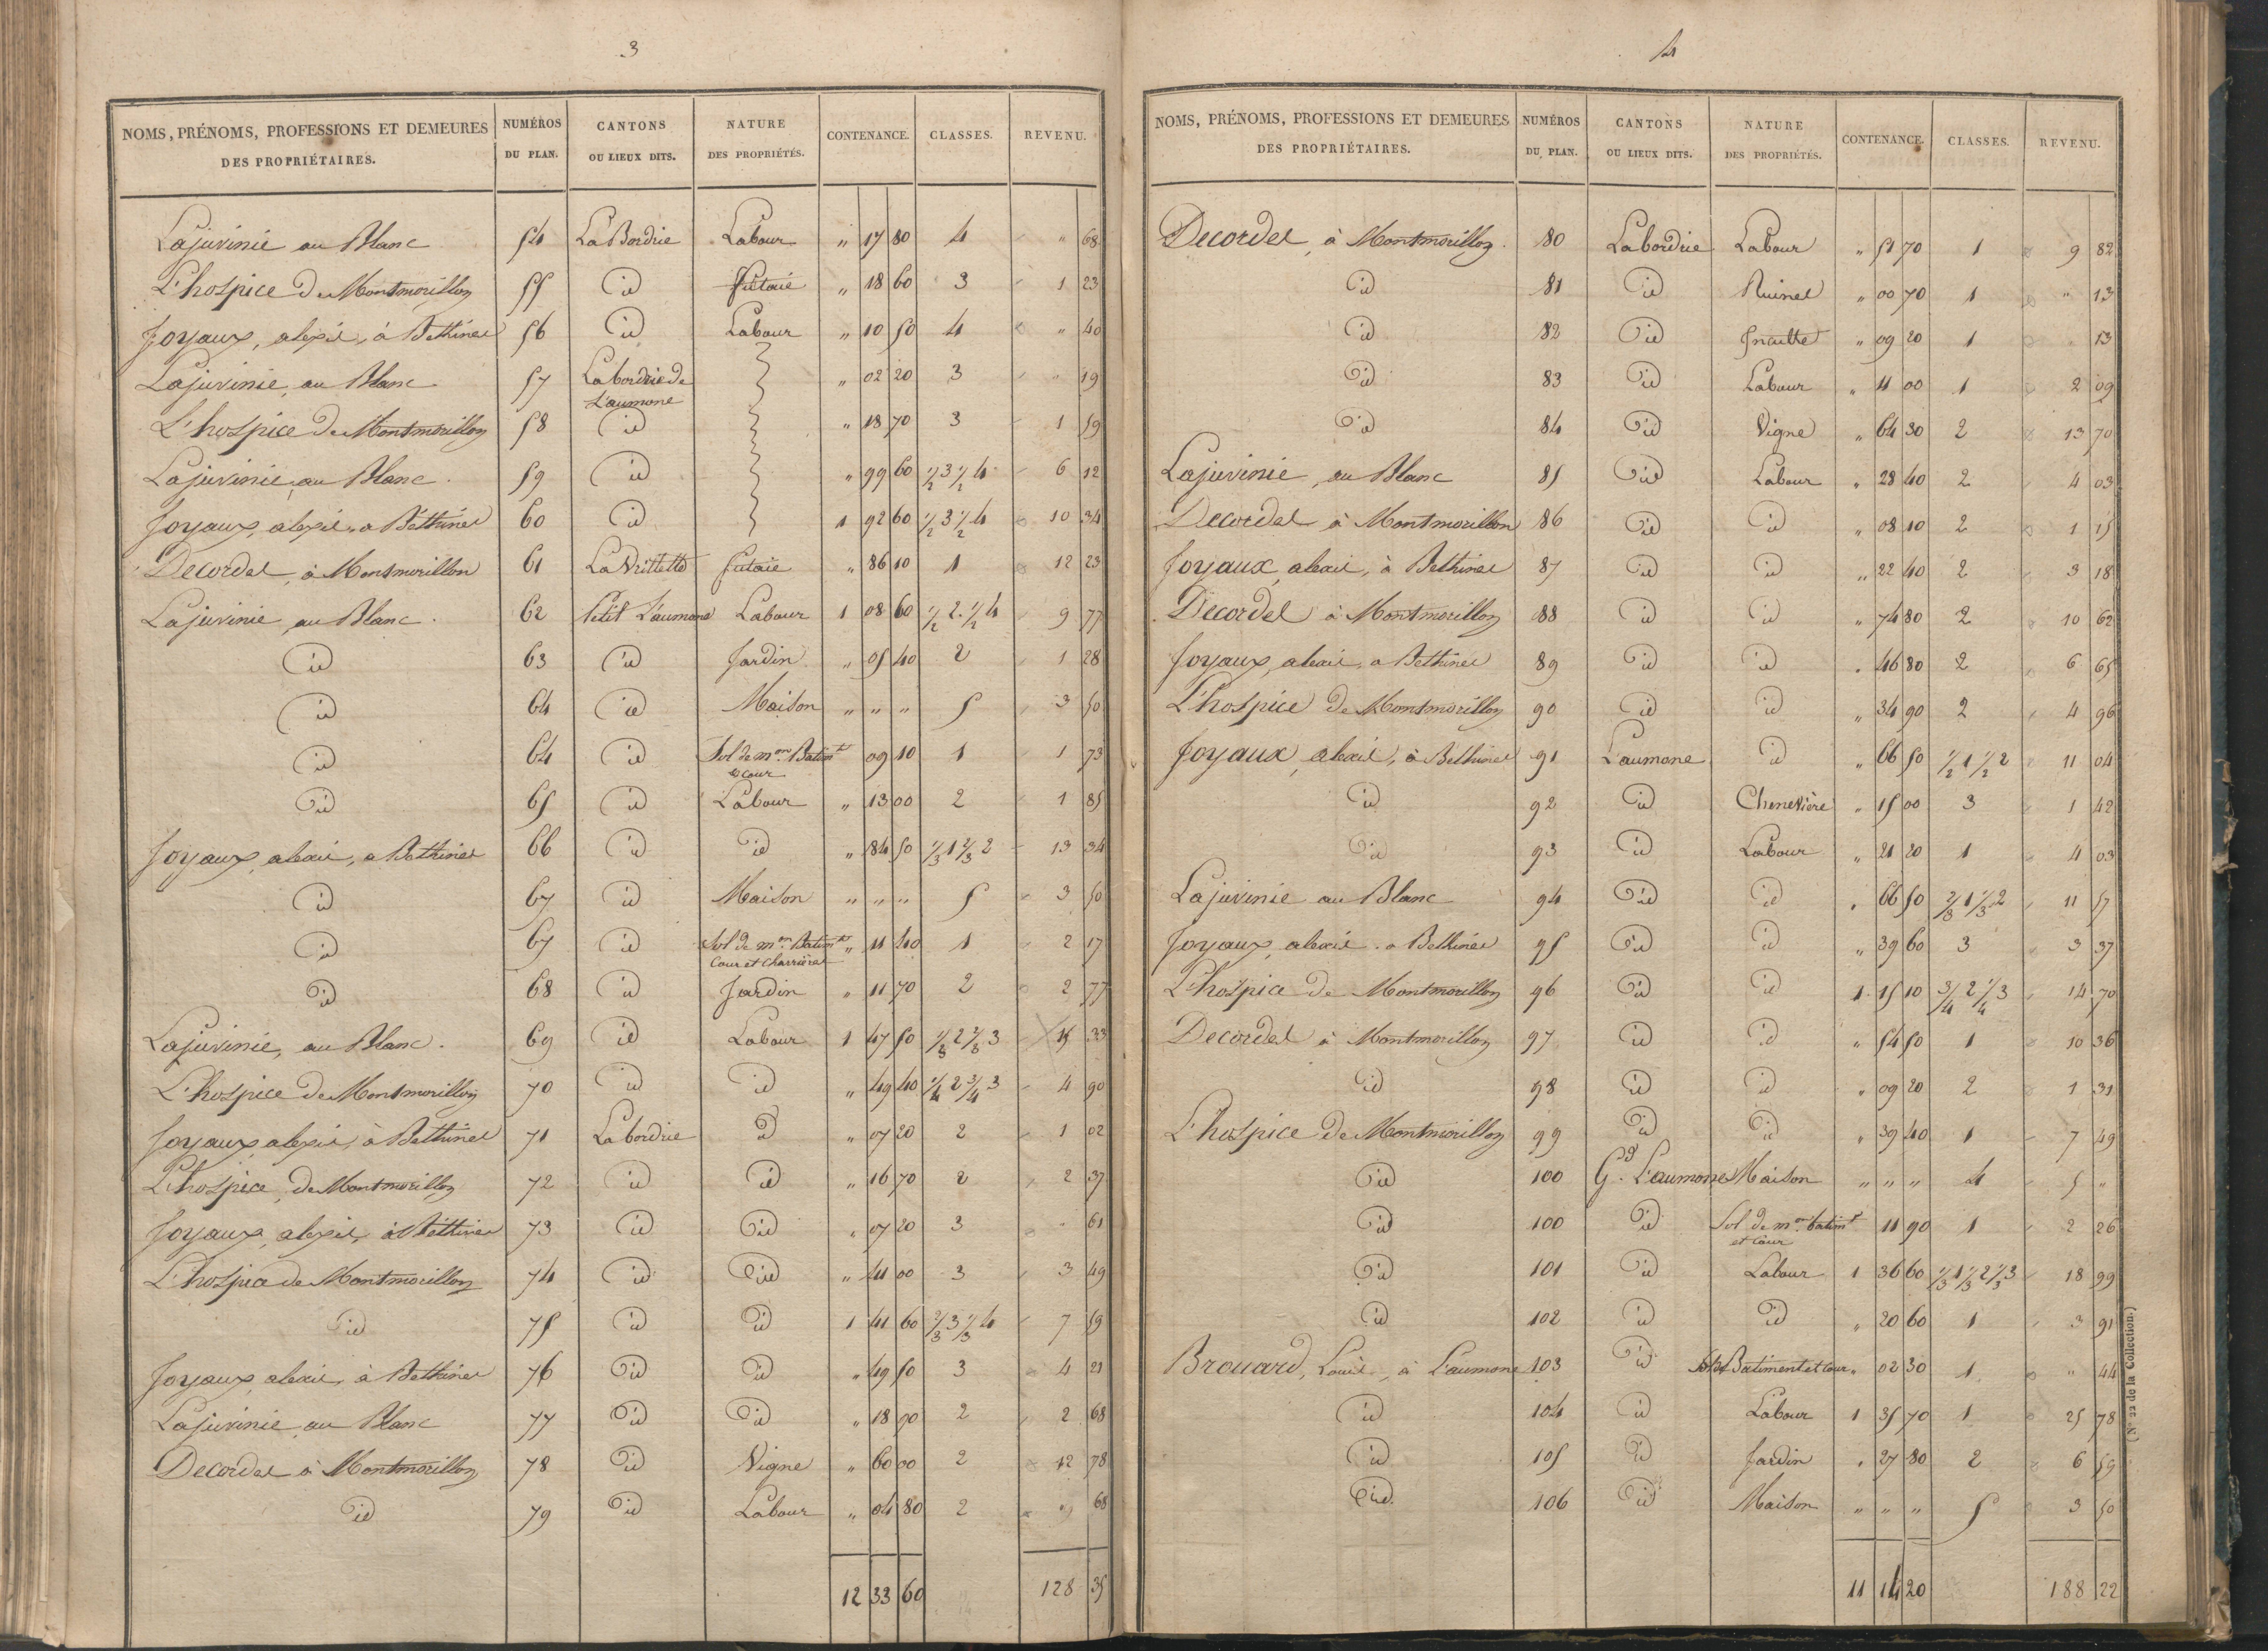 3
NOMS, PRÉNOMS, PROFESSIONS ET DEMEURES DES PROPRIÉTAIRES. NUMÉROS DU PLAN. CANTONS OU LIEUX DITS. NATURE DES PROPRIÉTÉS. CONTENANCE. CLASSES. REVENU.
Lajuvinie au Blanc 54 La Bordrie Labour " 17 80 4 " 68
L'hospice de Montmorillon 55 id futaie " 18 60 3 1 23
Joyaux, alexis, à Béthines 56 id Labour " 10 50 4 " 40
Lajuvinie, au Blanc 57 La bordrie de L'aumone " 02 20 3 " 19
L'hospice de Montmorillon 58 id " 18 70 3 1 59
Lajuvinie, au Blanc. 59 id " 99 60 1/2 3 1/2 4 6 12
Joyaux, alexis, a Béthines 60 id 1 92 60 1/2 3 1/2 4 10 34
Decordes, à Montmorillon 61 futaie " 86 10 1 12 23
Lajuvinie, au Blanc. 62 Petit L'aumone Labour 1 08 60 1/2 2 1/2 4 9 77
id 63 id Jardin " 05 40 2 1 28
id 64 id Maison " " " 5 3 50
id 64 id Sol de mon. Batimt & Cour 09 10 1 1 73
id 65 id Labour " 13 00 2 1 85
Joyaux, alexis, a Bethines 66 id id " 84 50 1/3 1 2/3 2 13 34
id 67 id Maison " " " 5 3 50
id 67 id Sol de mon. Batimts Cour et Charrières " 11 40 1 2 17
id 68 id Jardin " 11 70 2 2 77
Lajuvinie, au Blanc. 69 id Labour 1 47 50 1/3 2 2/3 3 15 33
L'hospice de Montmorillon 70 id id " 49 40 1/4 2 3/4 3 4 90
Joyaux, alexis, à Bethines 71 Labordrie id " 07 20 2 1 02
L'hospice, de Montmorillon 72 id id " 16 70 2 2 37
Joyaux, alexis, à Béthines 73 id id " 07 20 3 " 61
L'hospice de Montmorillon 74 id id " 41 00 3 3 49
id 75 id id 1 41 60 2/3 3 1/3 4 7 59
Joyaux, alexis, à Bethines 76 id id " 49 50 3 4 21
Lajuvinie, au Blanc 77 id id " 18 90 2 2 68
Decordes à Montmorillon 78 id Vigne " 60 00 2 12 78
id 79 id Labour " 04 80 2 " 68
12 33 60 128 35
4
NOMS, PRÉNOMS, PROFESSIONS ET DEMEURES DES PROPRIÉTAIRES. NUMÉROS DU PLAN. CANTONS OU LIEUX DITS. NATURE DES PROPRIÉTÉS. CONTENANCE. CLASSES. REVENU.
Decordes, à Montmorillon. 80 Labordrie Labour " 51 70 1 9 82
id 81 id Ruines " 00 70 1 " 13
id 82 id Inculte " 09 20 1 " 13
id 83 id Labour " 11 00 1 2 09
id 84 id Vigne " 64 30 2 13 70
Lajuvinie, au Blanc 85 id Labour " 28 40 2 4 03
Decordes à Montmorillon 86 id id " 08 10 2 1 15
Joyaux, alexis, à Bethines 87 id id " 22 40 2 3 18
Decordes à Montmorillon 88 id id " 74 80 2 10 62
Joyaux, alexis, a Bethines 89 id id " 46 80 2 6 65
L'hospice de Montmorillon 90 id id " 34 90 2 4 96
Joyaux, alexis, à Bethines 91 L'aumone id " 66 50 1/2 1 1/2 2 11 04
id 92 id Chenevière " 15 00 3 1 42
id 93 id Labour " 21 20 1 4 03
Lajuvinie au Blanc 94 id id " 66 50 2/3 1 1/3 2 11 57
Joyaux, alexis. a Bethines 95 id id " 39 60 3 3 37
L'hospice de Montmorillon 96 id id 1 15 10 3/4 2 1/4 3 14 70
Decordes à Montmorillon 97 id id " 54 50 1 10 36
id 98 id id " 09 20 2 1 31
L'hospice de Montmorillon 99 id id " 39 40 1 7 49
id 100 Gd. L'aumone Maison " " " 4 5 "
id 100 id Sol de mon. batimt et Cour 11 90 1 2 26
id 101 id Labour 1 36 60 1/3 1 1/3 2 1/3 3 18 99
id 102 id id " 20 60 1 3 91
Brouard, Louis, à L'aumone 103 id Batiment et Cour " 02 30 1 " 44
id 104 id Labour 1 35 70 1 25 78
id 105 id Jardin " 27 80 2 6 59
id 106 id Maison " " " 5 3 50
11 14 20 188 22
(N° 22 de la Collection.)